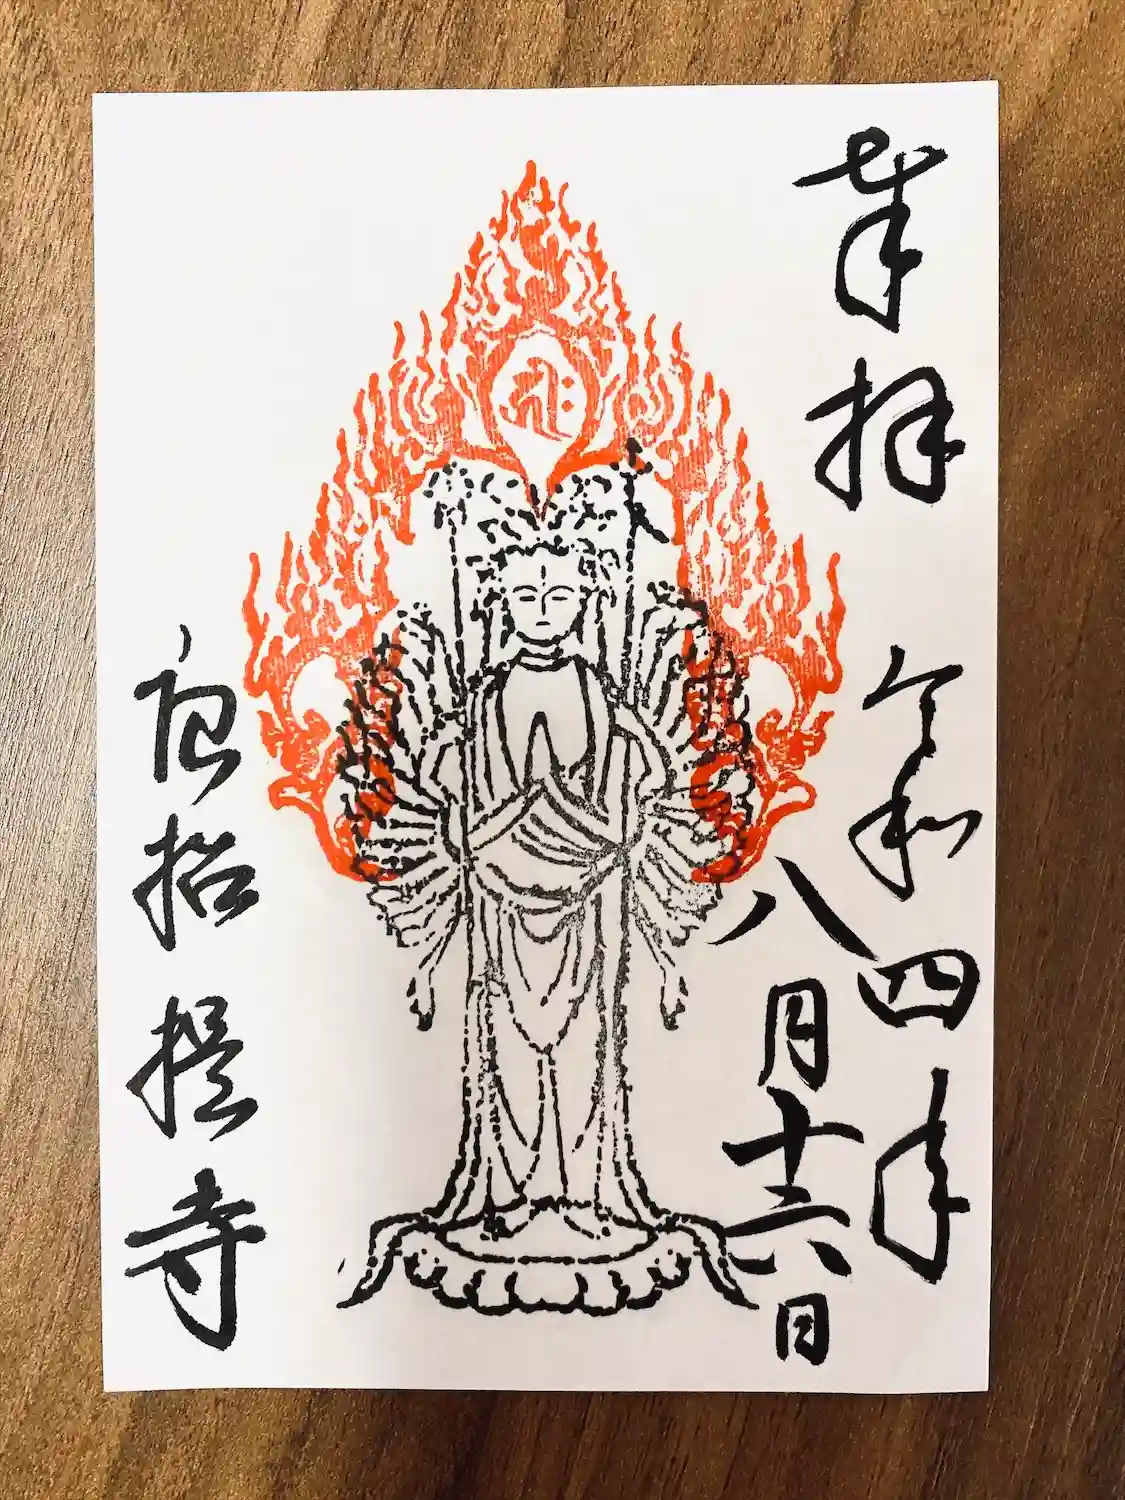 奉拝
令和四年
八月十六日
唐招提寺
𑖎𑖿𑖨𑖱𑖾